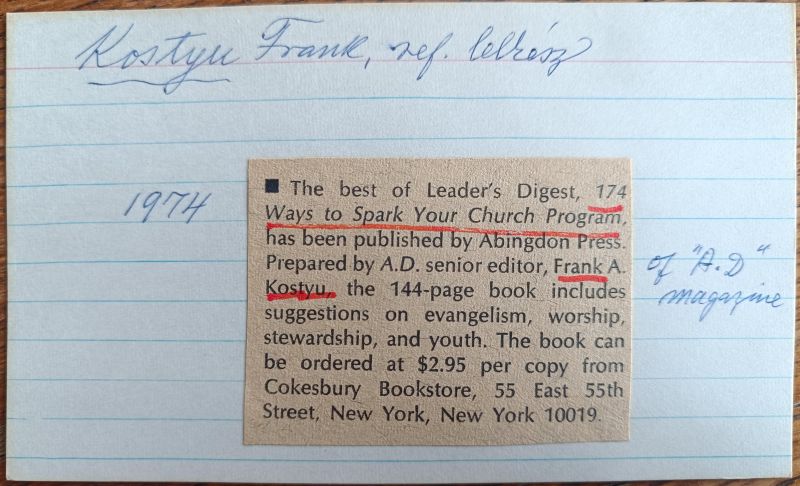 Kostyu Frank, ref. lelkész
1974
■ The best of Leader's Digest, 174
Ways to Spark Your Church Program,
has been published by Abingdon Press.
Prepared by A.D. senior editor, Frank A.
Kostyu, the 144-page book includes
suggestions on evangelism, worship,
stewardship, and youth. The book can
be ordered at $2.95 per copy from
Cokesbury Bookstore, 55 East 55th
Street, New York, New York 10019.
of "A.D"
magazine